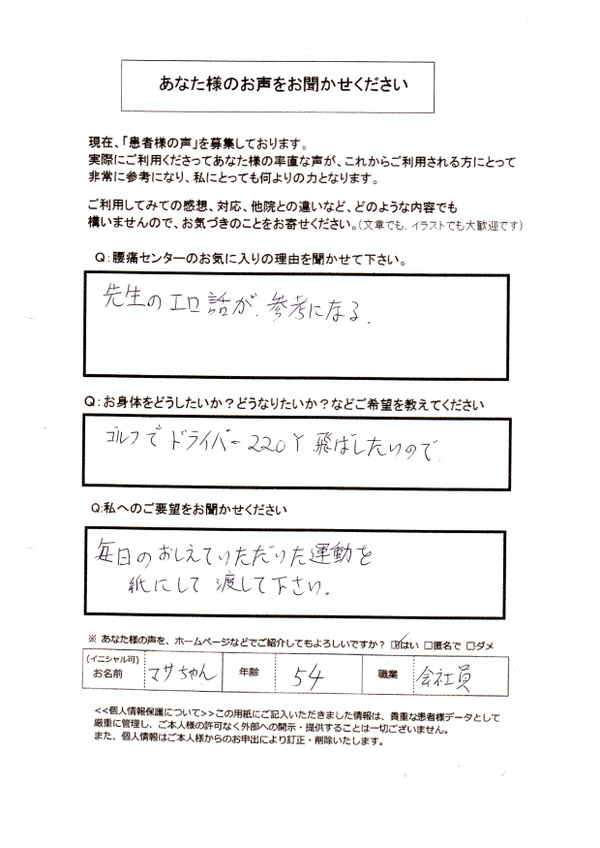 あなた様のお声をお聞かせください
現在、「患者様の声」を募集しております。
実際にご利用くださってあなた様の率直な声が、これからご利用される方にとって
非常に参考になり、私にとっても何よりの力となります。
ご利用してみての感想、対応、他院との違いなど、どのような内容でも
構いませんので、お気づきのことをお寄せください。(文章でも、イラストでも大歓迎です)
Q:腰痛センターのお気に入りの理由を聞かせて下さい。
先生のエロ話が、参考になる。
Q:お身体をどうしたいか?どうなりたいか?などご希望を教えてください
ゴルフでドライバー220Y飛ばしたいので
Q:私へのご要望をお聞かせください
毎日のおしえていただいた運動を
紙にして渡して下さい。
※ あなた様の声を、ホームページなどでご紹介してもよろしいですか? ☑はい □匿名で □ダメ
(イニシャル可)
お名前 マサちゃん 年齢 54 職業 会社員
<<個人情報保護について>>この用紙にご記入いただきました情報は、貴重な患者様データとして
厳重に管理し、ご本人様の許可なく外部への開示・提供することは一切ございません。
また、個人情報はご本人様からのお申出により訂正・削除いたします。